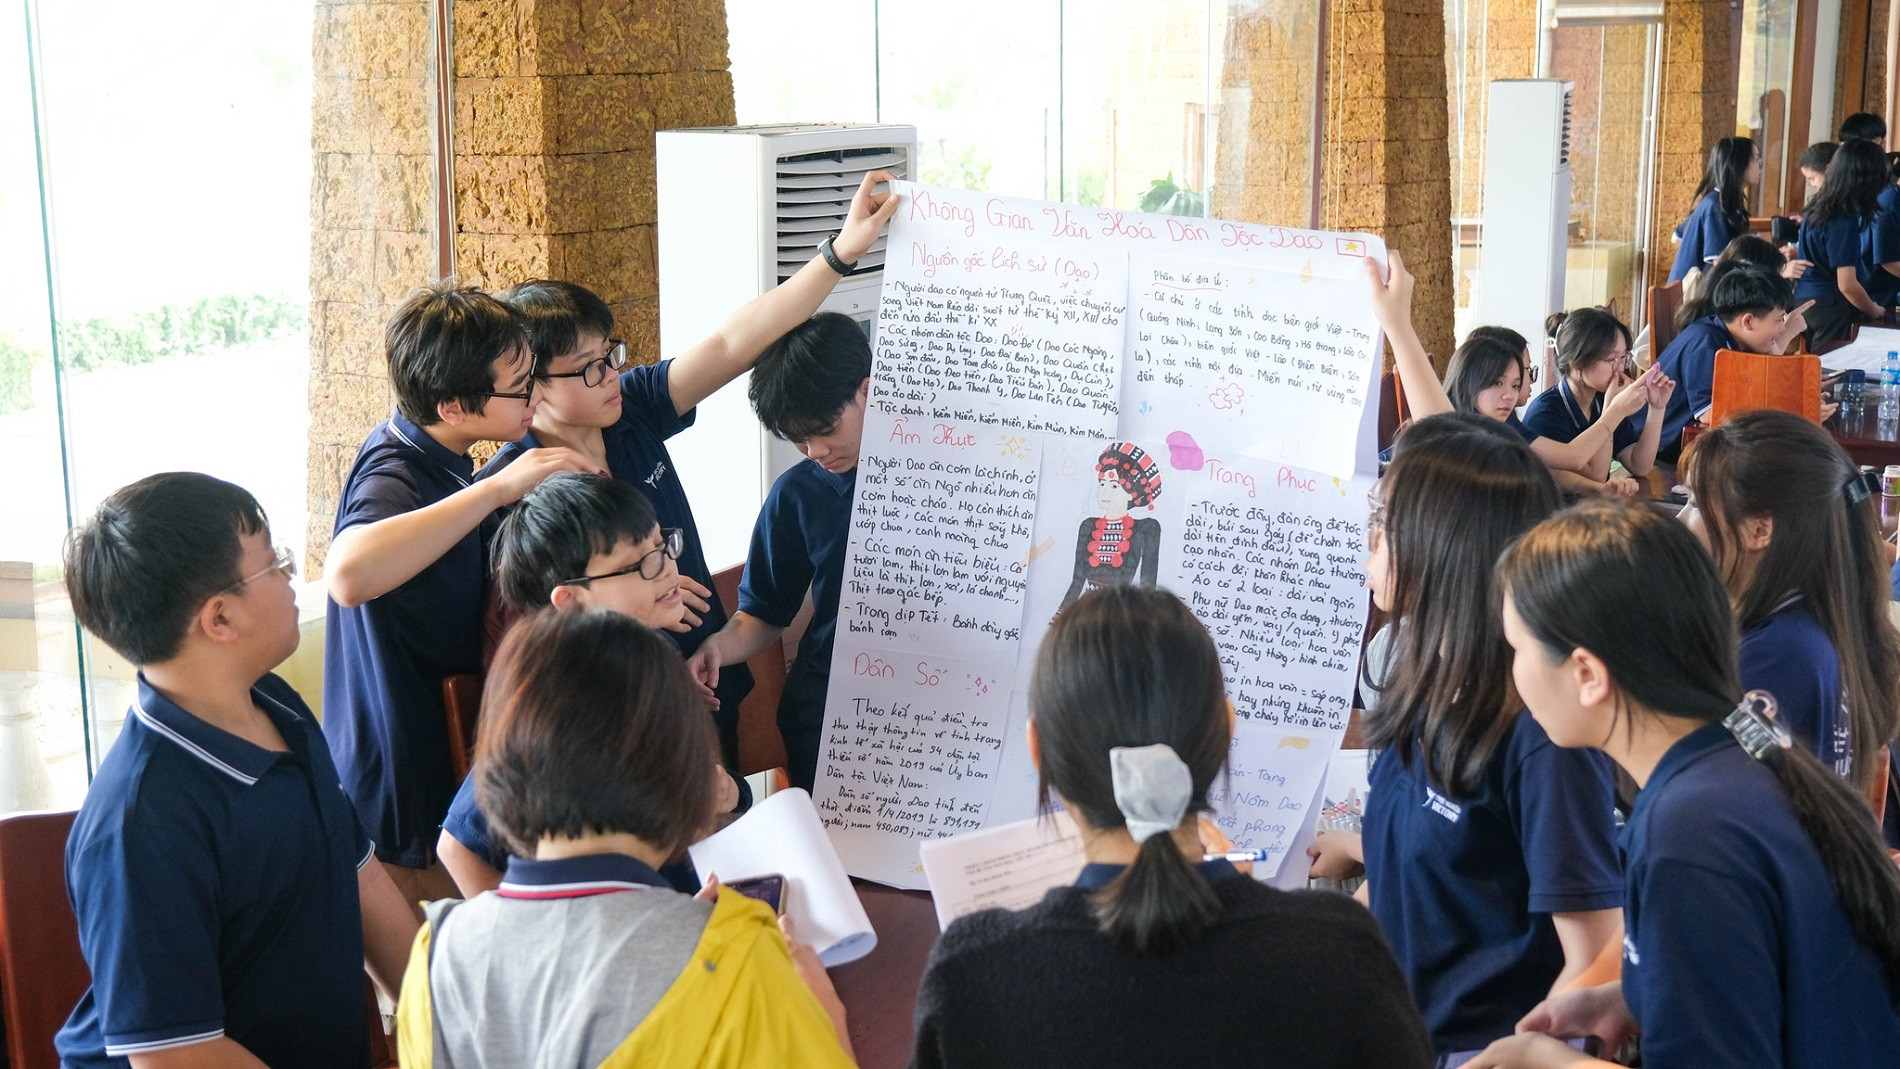 Không Gian Văn Hoá Dân Tộc Dao
Nguồn gốc lịch sử (Dao)
- Người dao có nguồn từ Trung Quốc, việc chuyển cư
sang Việt Nam kéo dài suốt từ thế kỷ XII, XIII cho
đến nửa đầu thế kỉ XX
- Các nhóm dân tộc Dao: Dao Đỏ (Dao Cóc Ngáng,
Dao Sừng, Dao Dụ Lạy, Dao Đại Bản), Dao Quần Chẹt
(Dao Sơn đầu, Dao Tam đảo, Dao Nga hoàng, Dụ Cùn),
Dao tiền (Dao Đeo tiền, Dao Tiểu bản), Dao Quần
trắng (Dao Họ), Dao Thanh Y, Dao Làn Tẻn (Dao Tuyển,
Dao áo dài)
- Tộc danh: Kềm Miền, Kiềm Miền, Kìm Mùn, Kìm Mần,...
Phân bố địa lí:
- Cư chủ ở các tỉnh dọc biên giới Việt - Trung
(Quảng Ninh, Lạng Sơn, Cao Bằng, Hà Giang, Lào Cai,
Lai Châu), biên giới Việt - Lào (Điện Biên, Sơn
La), các tỉnh nội địa. Miền núi, từ vùng cao
đến thấp
Ẩm Thực
- Người Dao ăn cơm là chính, ở
một số ăn Ngô nhiều hơn ăn
cơm hoặc cháo. Họ còn thích ăn
thịt luộc, các món thịt sấy khô,
ướp chua, canh măng chua
- Các món ăn tiêu biểu: Cá
thịt lợn lam với nguyên
liệu là thịt lợn, xả, lá chanh,...,
Thịt treo gác bếp.
- Trong dịp Tết: Bánh dày gấc,
bánh rợm
Trang Phục
- Trước đây, đàn ông để tóc
dài, búi sau gáy (để chỏm tóc
dài trên đỉnh đầu), xung quanh
cạo nhẵn. Các nhóm Dao thường
có cách đội khăn khác nhau
- Áo có 2 loại: dài và ngắn
- Phụ nữ Dao mặc đa dạng, thường
áo dài yếm, váy / quần. Y phục
sỡ. Nhiều loại hoa văn
vạn, cây thông, hình chim,
cây.
in hoa văn = sáp ong,
hay nhúng khuôn in
Dân Số
Theo kết quả điều tra
thu thập thông tin về tình trạng
kinh tế xã hội của 54 dân tộc
thiểu số năm 2019 của Ủy ban
Dân tộc Việt Nam:
Dân số người Dao tính đến
thời điểm 1/4/2019 là 891,151
người, nam 450,089, nữ 44
Tang
Nôm Dao
phong
VICTORY